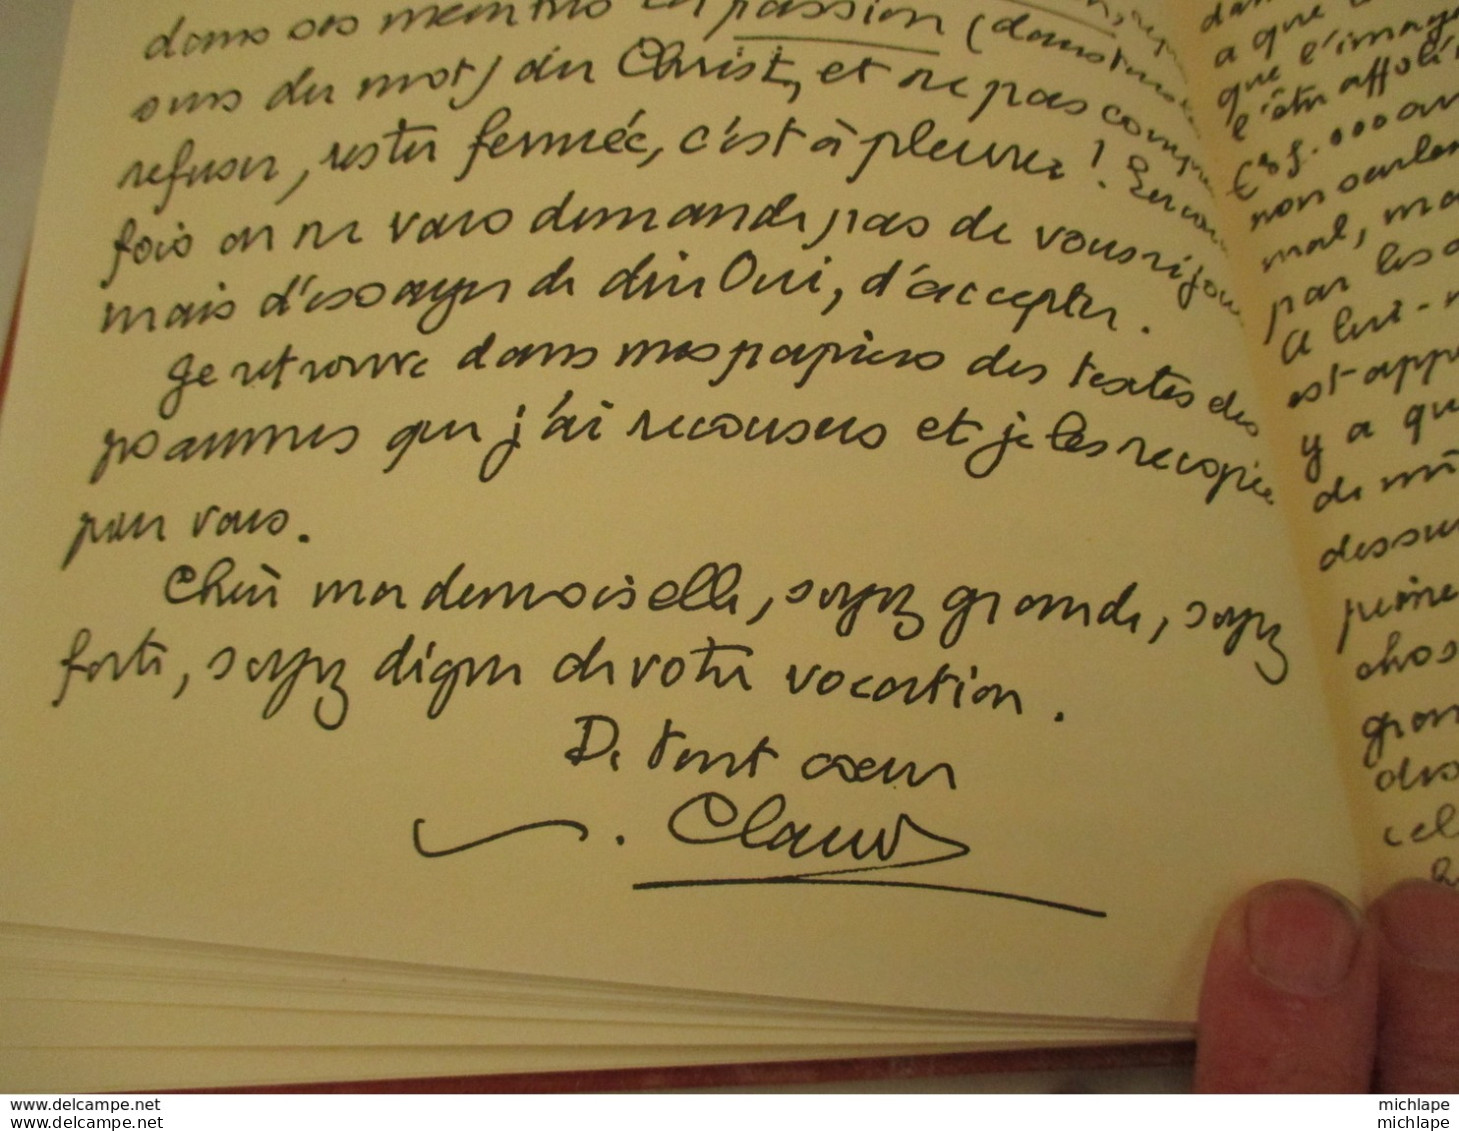 dans ses membres la passion (dans tous les
sens du mot) du Christ, et ne pas compre
refuser, rester fermée, c'est à pleurer ! Encore
fois on ne vous demande pas de vous réjou
mais d'essayer de dire Oui, d'accepter.
Je retrouve dans mes papiers des textes des
psaumes que j'ai recousus et je les recopie
pour vous.
Chère mademoiselle, soyez grande, soyez
forte, soyez digne de votre vocation.
De tout cœur
. Claudel
a que
que l'image
l'être affolé
non seulem
mal, ma
par les
A lui-
est-appe
y a que
de mi
dessu
peine
chos
gran
des
cel
www.delcampe.net
www.delcampe.net
michlape
michlape